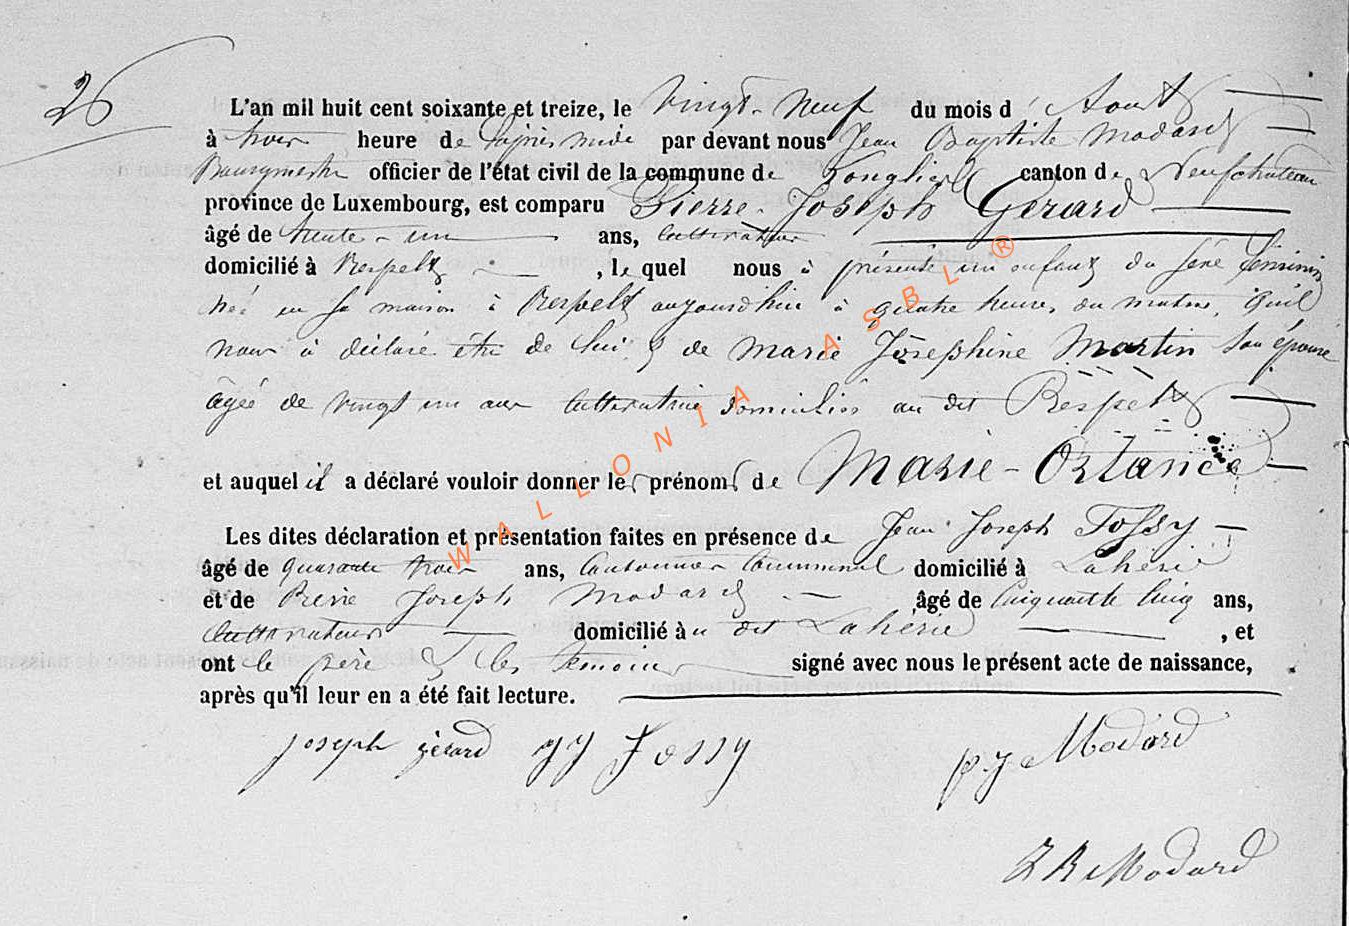 26
L'an mil huit cent soixante et treize, le vingt-neuf du mois d'Aout
à trois heure de l'après midi par devant nous Jean Baptiste Modard
Bourgmestre officier de l'état civil de la commune de Longlier canton de Neufchateau
province de Luxembourg, est comparu Pierre-Joseph Gérard
âgé de trente-un ans, cultivateur
domicilié à Respelt, le quel nous à présenté un enfant du séxe féminin
né en sa maison à Respelt aujourd'hui à quatre heures du matin, qu'il
nous à déclaré être de lui & de Marie Joséphine Martin son épouse
âgée de vingt un ans cultivatrice domiciliés au dit Respelt
et auquel il a déclaré vouloir donner les prénoms de Marie-Ortance
Les dites déclaration et présentation faites en présence de Jean Joseph Fossy
âgé de quarante trois ans, Cantonnier Communal domicilié à Lahérie
et de Joseph Modard âgé de Cinquante Cinq ans,
cultivateur domicilié au dit Lahérie, et
ont le père & les témoins signé avec nous le présent acte de naissance,
après qu'il leur en a été fait lecture.
joseph gérard JJ Fossy p.j Modard
J B Modard
WALLONIA ASBL ®